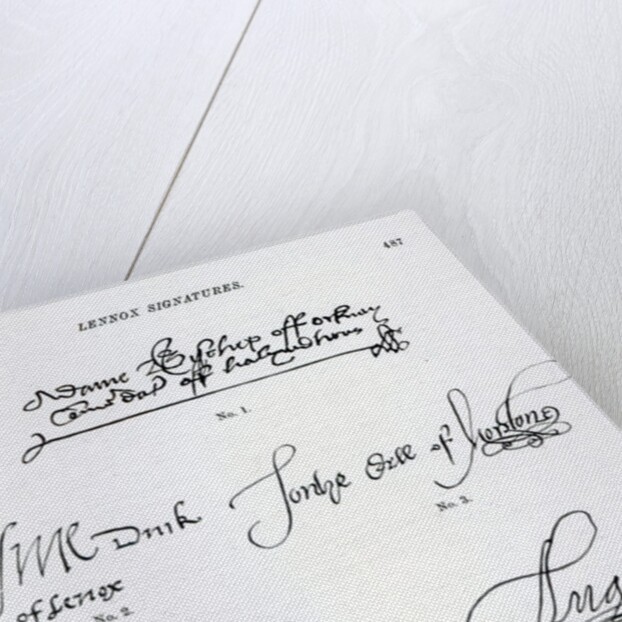 487
LENNOX SIGNATURES.
Adame Byschep off orknay
Comendal off halyrudhous
No. 1.
Jorthe Erle of
No. 3.
Duik
of Lenox
No. 2.